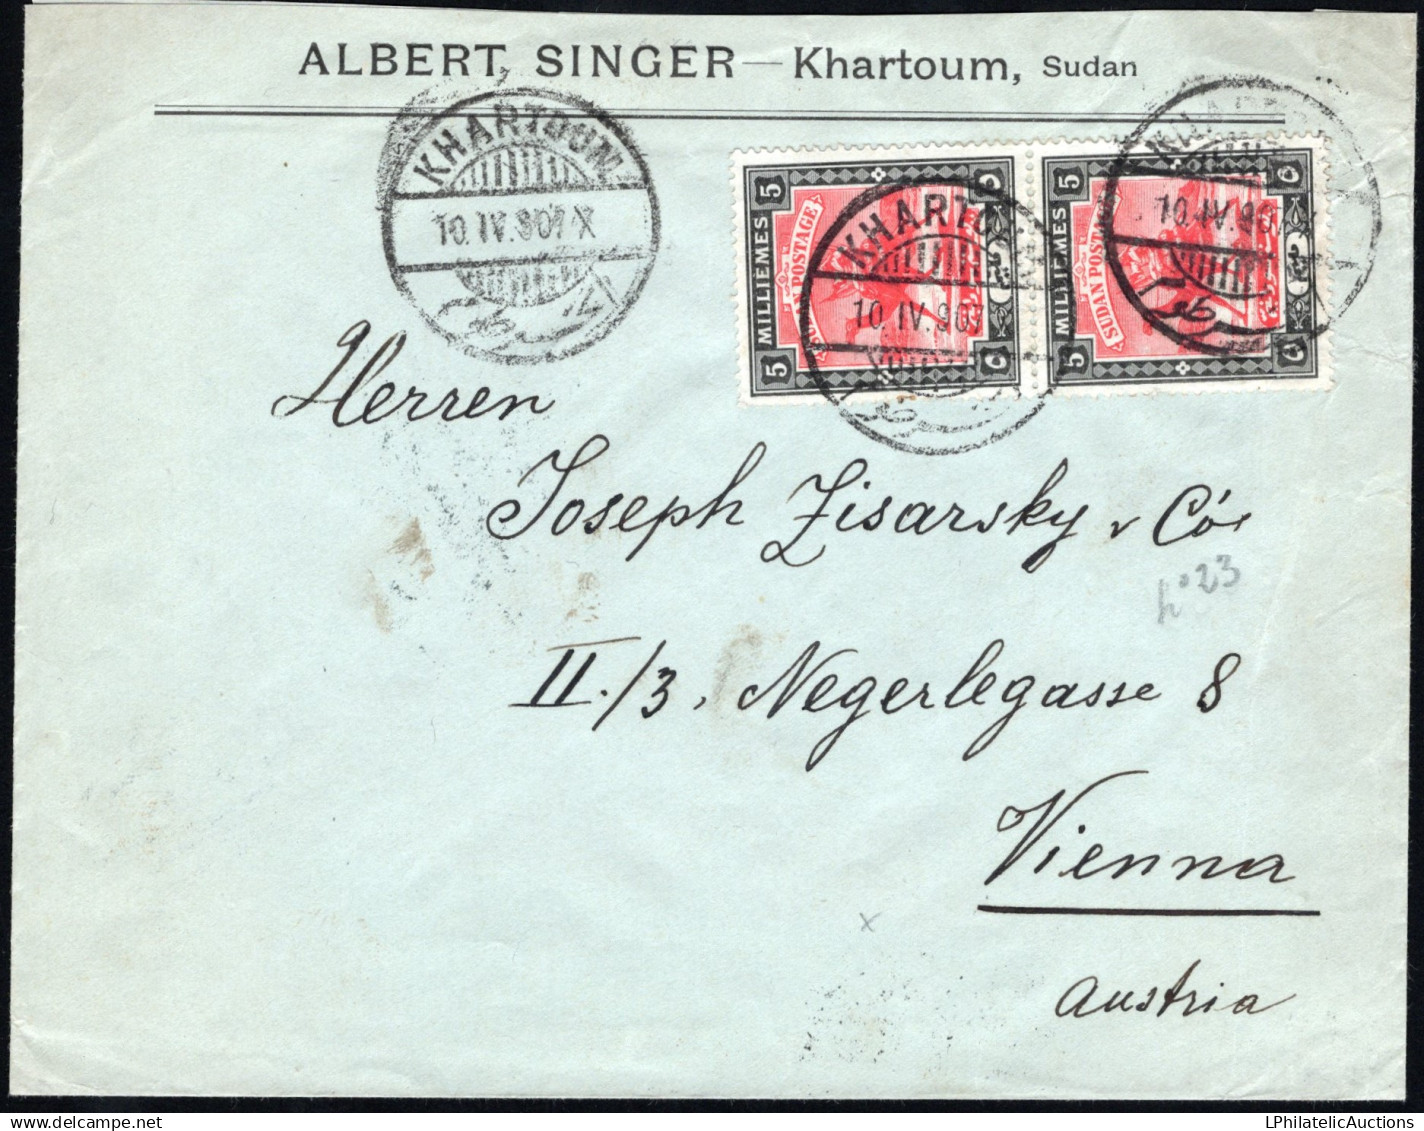 ALBERT SINGER — Khartoum, Sudan
KHARTOUM
10.IV.907 X
5 MILLIEMES 5
SUDAN POSTAGE
KHARTOUM
10.IV.907
5 MILLIEMES 5
SUDAN POSTAGE
KHARTOUM
10.IV.907
Herren
Joseph Zisarsky & Co.
No 23
II./3. Negerlegasse 8
Vienna
Austria
x
LPhilatelicAuctions
www.delcampe.net